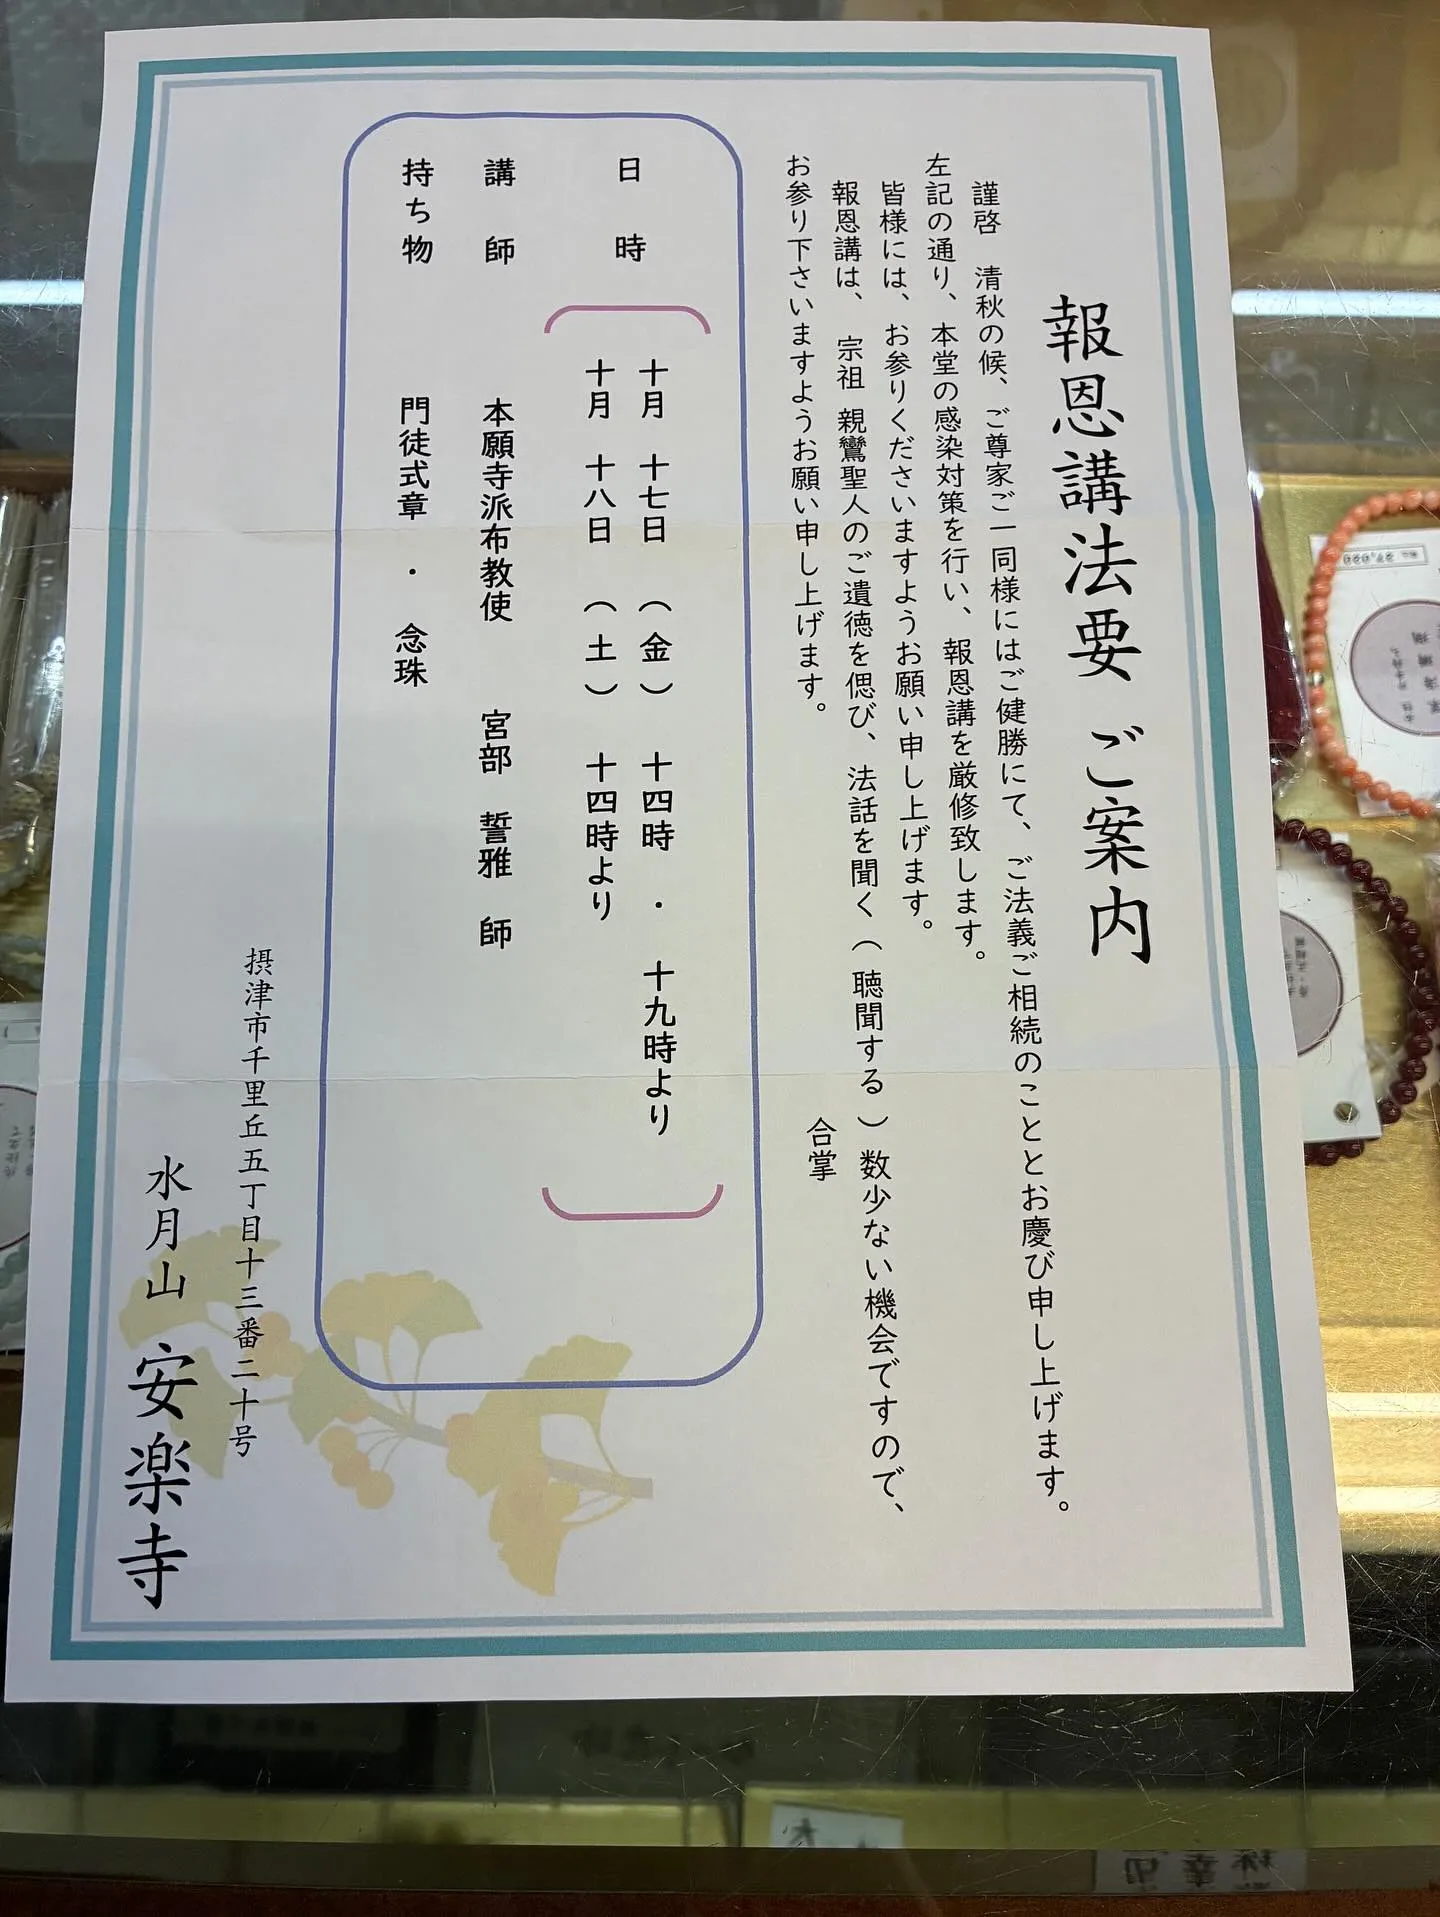 報恩講法要 ご案内
謹啓 清秋の候、ご尊家ご一同様にはご健勝にて、ご法義ご相続のこととお慶び申し上げます。
左記の通り、本堂の感染対策を行い、報恩講を厳修致します。
皆様には、お参りくださいますようお願い申し上げます。
報恩講は、宗祖 親鸞聖人のご遺徳を偲び、法話を聞く(聴聞する)数少ない機会ですので、
お参り下さいますようお願い申し上げます。
合掌
日時
十月 十七日 (金) 十四時 ・ 十九時より
十月 十八日 (土) 十四時より
講師 本願寺派布教使 宮部 誓雅 師
持ち物 門徒式章 ・ 念珠
摂津市千里丘五丁目十三番二十号
水月山 安楽寺